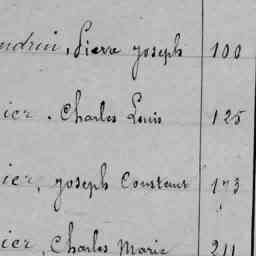 Pierre Joseph 100
ier. Charles Louis 125
ier, Joseph Constant 173
ier, Charles Marie 211